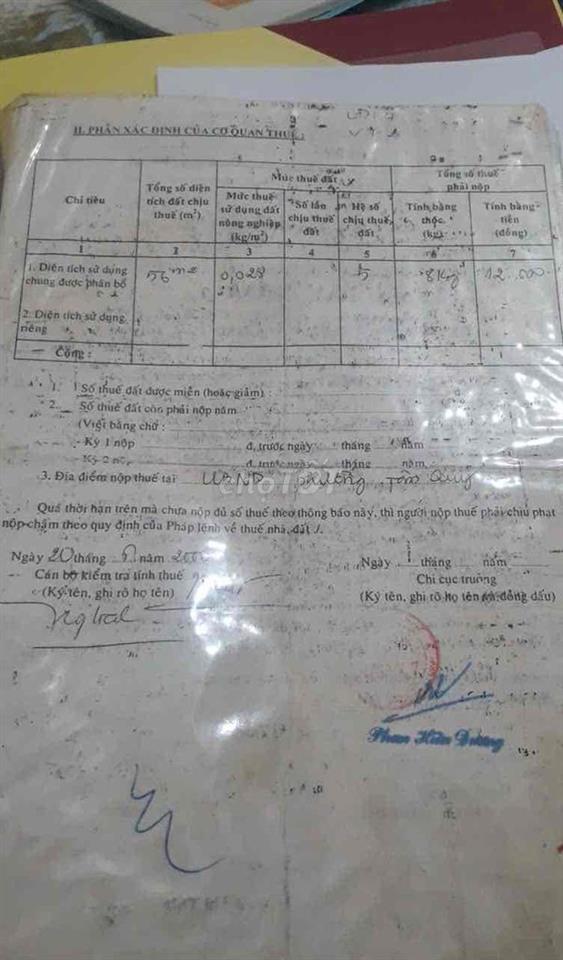 II. PHẦN XÁC ĐỊNH CỦA CƠ QUAN THUẾ:
Chỉ tiêu
Tổng số diện tích đất chịu thuế (m²)
Mức thuế đất
Mức thuế sử dụng đất nông nghiệp (kg/m²)
Số lần chịu thuế đất
Hệ số chịu thuế đất
Tổng số thuế phải nộp
Tính bằng thóc (kg)
Tính bằng tiền (đồng)
1 2 3 4 5 6 7
1. Diện tích sử dụng chung được phân bổ 56 m2 0,028 5 8Kg 12.000
2. Diện tích sử dụng riêng
Cộng:
1. Số thuế đất được miễn (hoặc giảm) :
2. Số thuế đất còn phải nộp năm
(Viết bằng chữ :
- Kỳ 1 nộp đ, trước ngày tháng năm
- Kỳ 2 nộp đ, trước ngày tháng năm
3. Địa điểm nộp thuế tại UBND phường Tân Quý
Chợ TỐT
Quá thời hạn trên mà chưa nộp đủ số thuế theo thông báo này, thì người nộp thuế phải chịu phạt
nộp chậm theo quy định của Pháp lệnh về thuế nhà, đất ./.
Ngày 20 tháng năm Ngày tháng năm
Cán bộ kiểm tra tính thuế Chi cục trưởng
(Ký tên, ghi rõ họ tên) (Ký tên, ghi rõ họ tên và đóng dấu)
Phan Hiền Dương